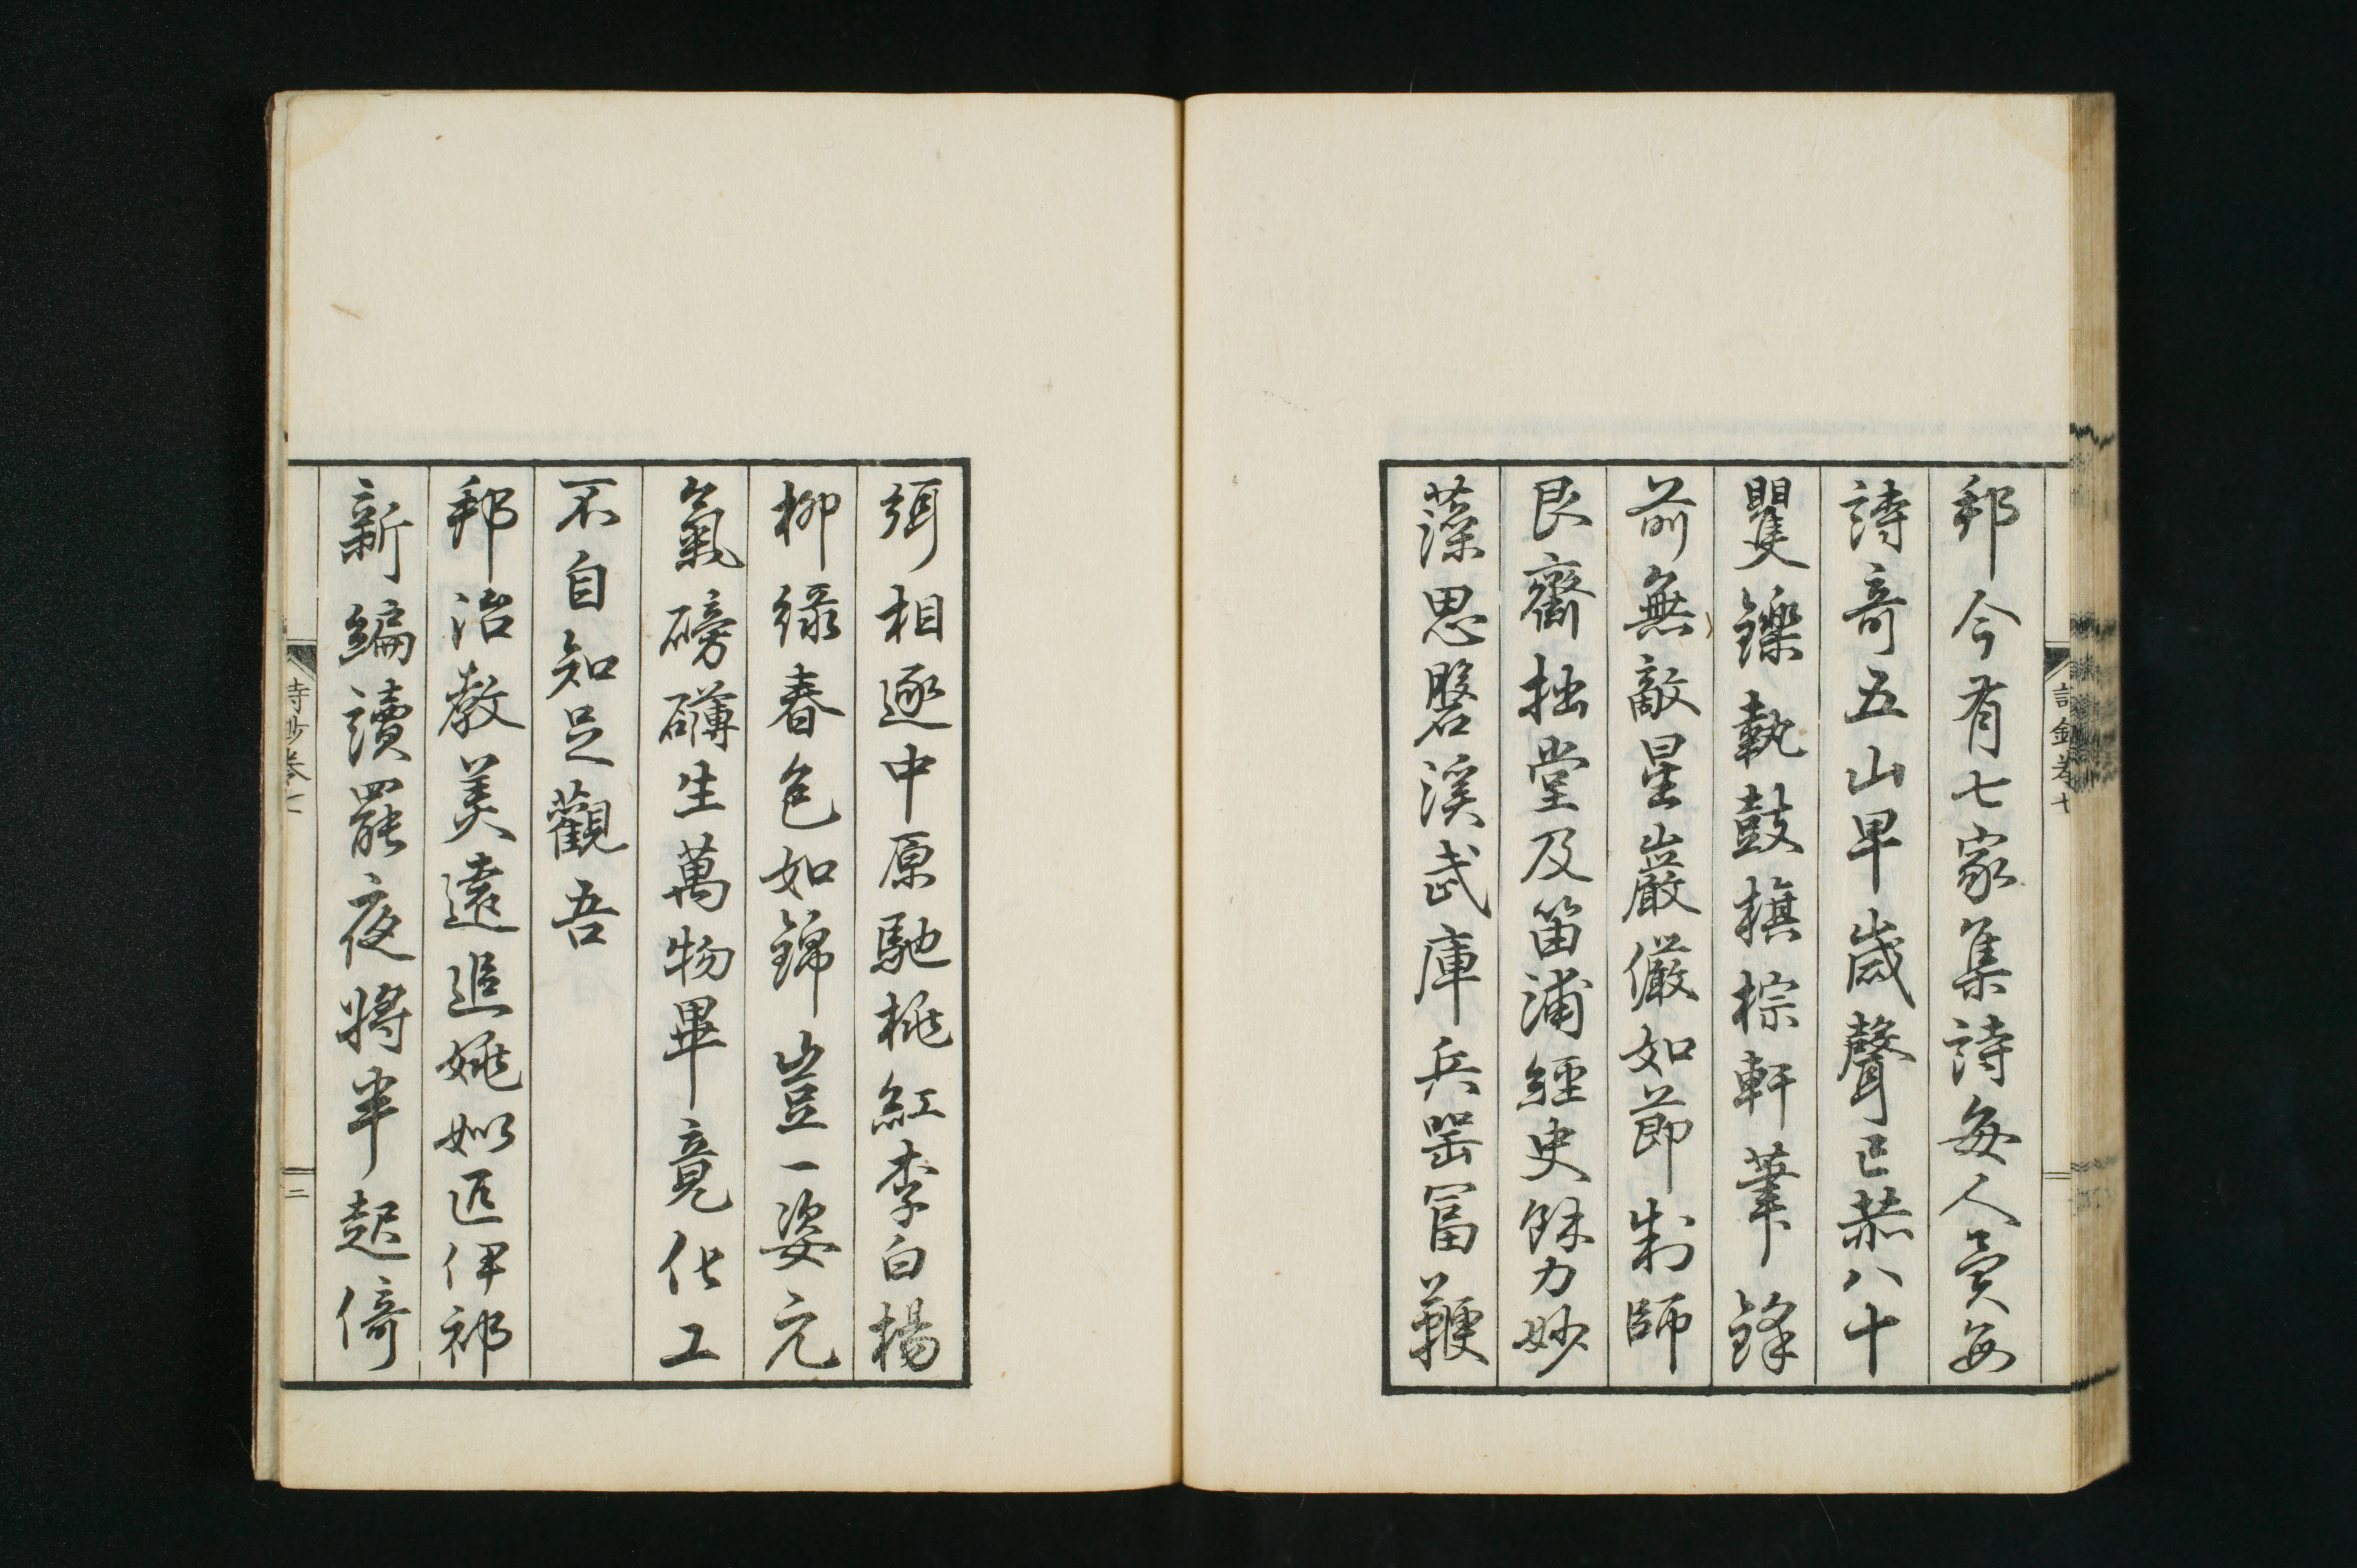 邦今有七家集詩每人異每
詩奇五山早歲聲已恭八十
矍鑠執鼓旗棕軒筆鋒
前無敵星巖儼如節制師
艮齋拙堂及笛浦經史餘力妙
藻思磐溪武庫兵器富鞭
弭相逐中原馳桃紅李白楊
柳綠春色如錦豈一姿元
氣磅礴生萬物畢竟化工
不自知足觀吾
邦治教美遠追姚姒匹伊祁
新編讀罷夜將半起倚
詩鈔卷七
二